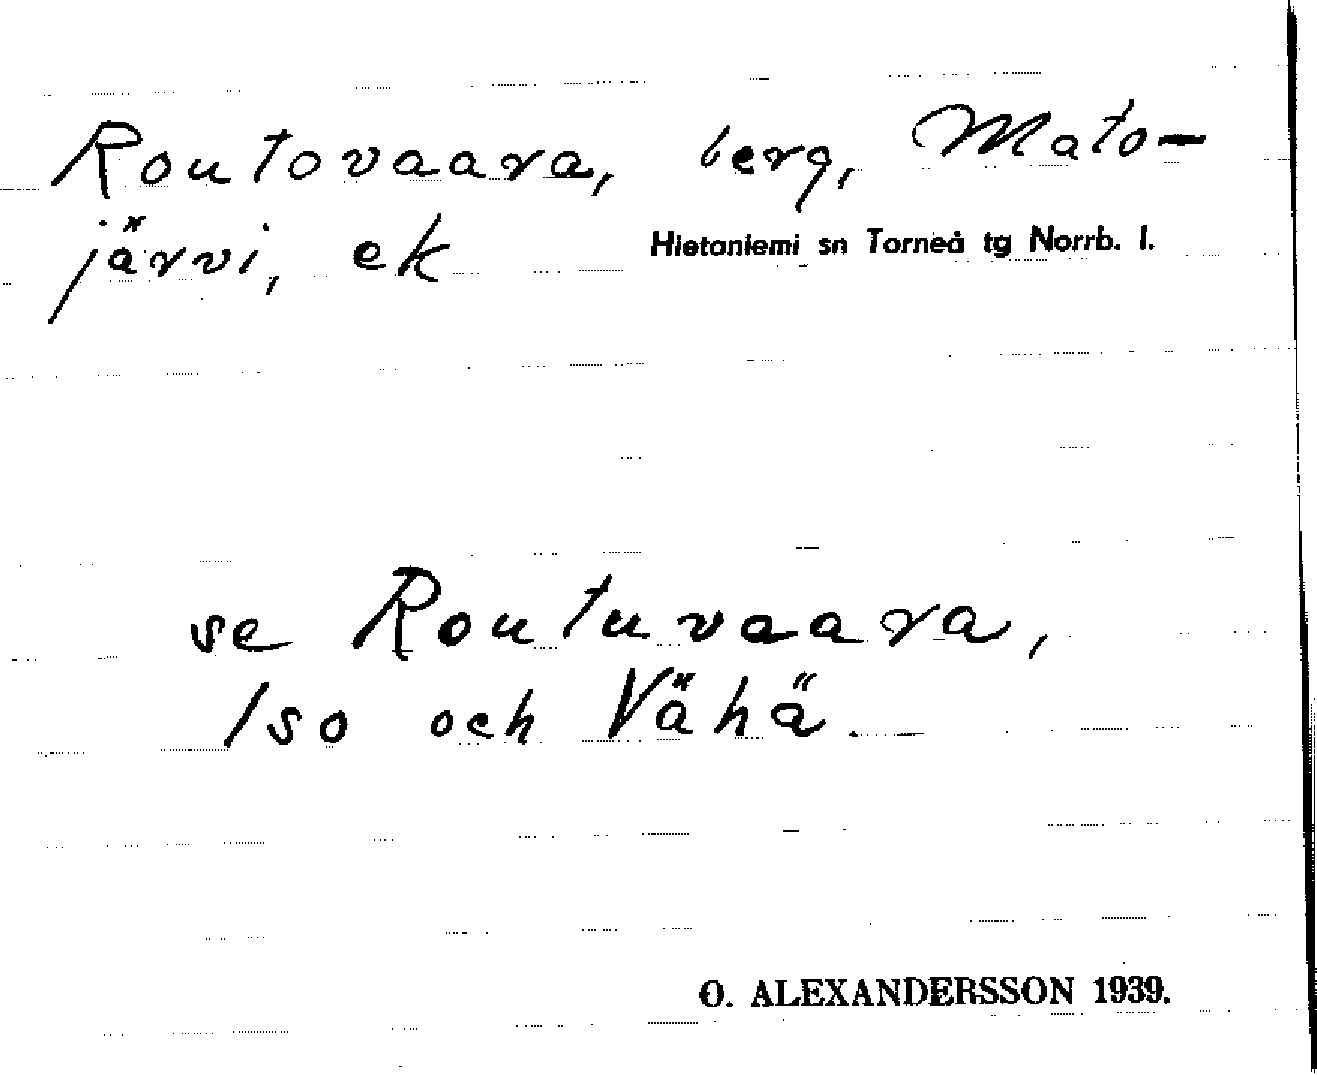 Routovaara, berg, Mato-
järvi, ek Hietaniemi sn Torneå tg Norrb. l.
se Routuvaara,
Iso och Vähä.
O. ALEXANDERSSON 1939.